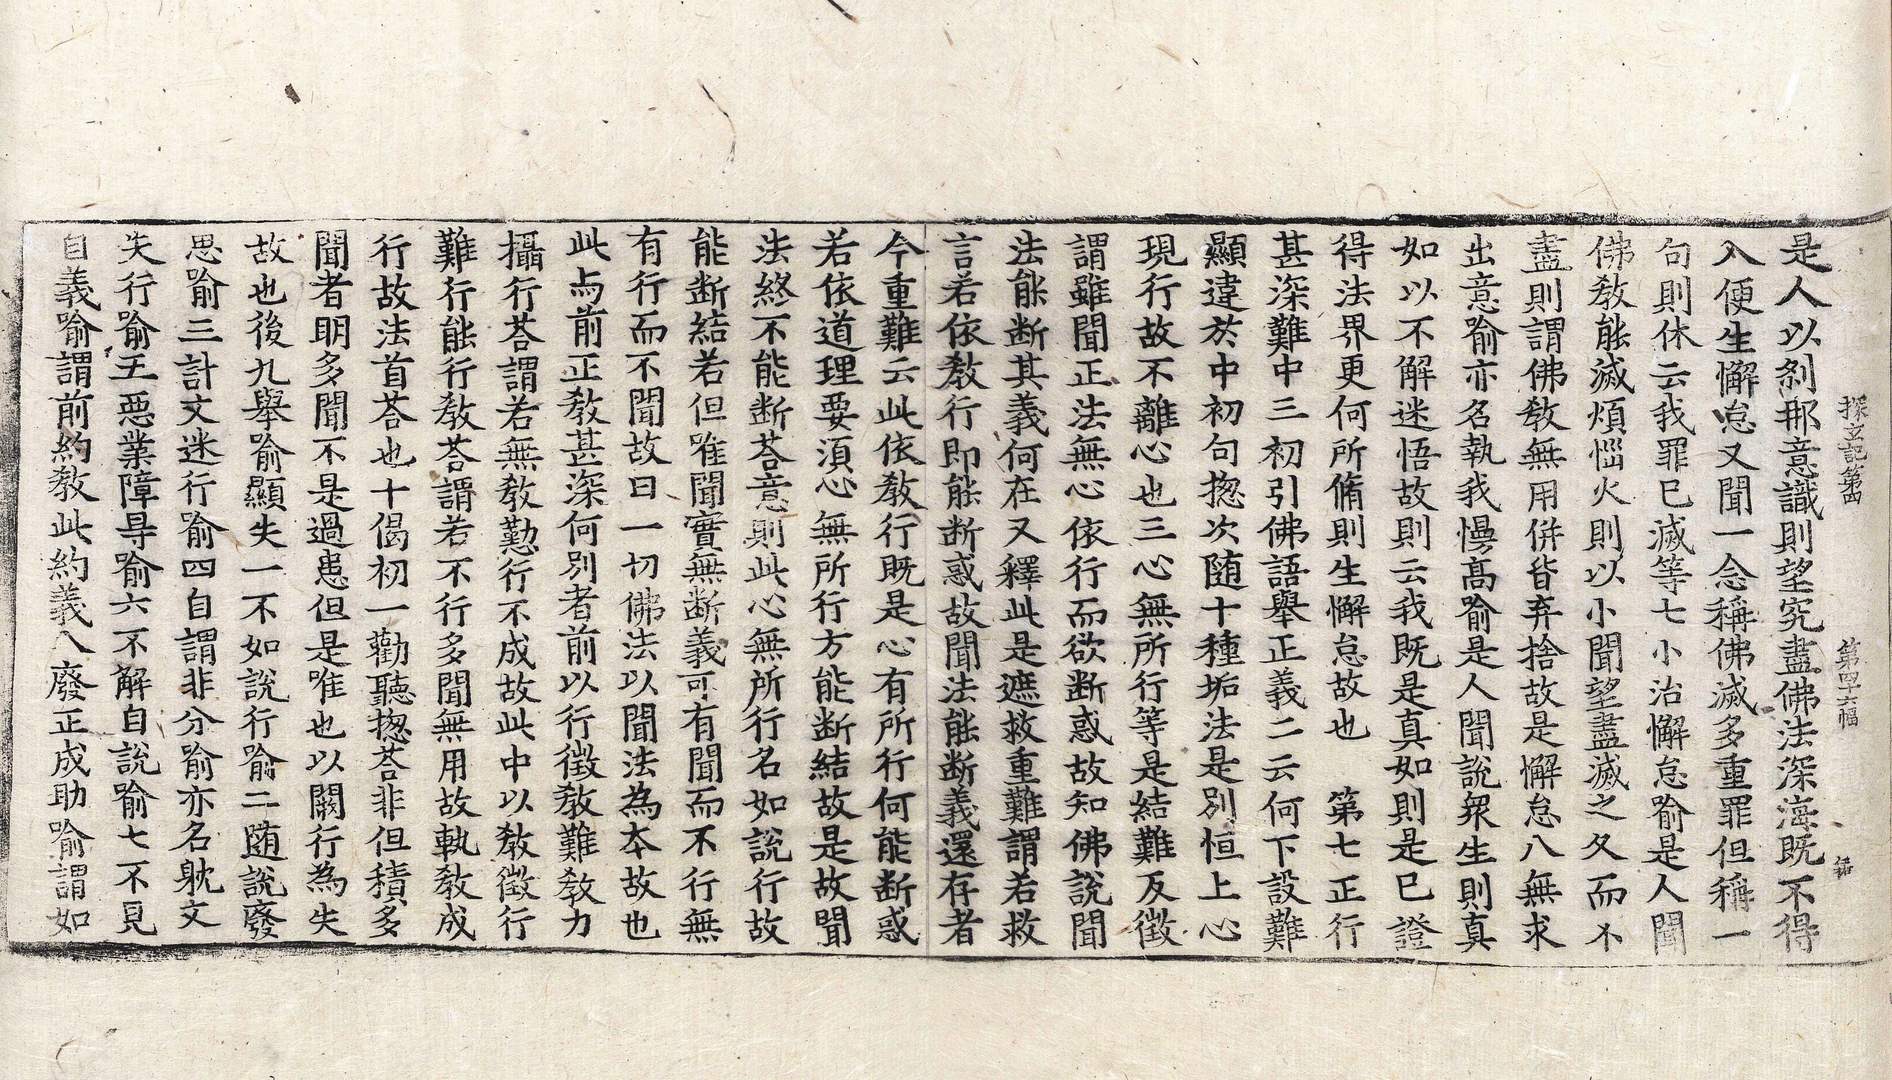 探玄記第四 第四十六幅
是人以刹那意識則望究盡佛法深海既不得
入便生懈怠又聞一念稱佛滅多重罪但稱一
句則休云我罪已滅等七小治懈怠喻是人聞
佛教能滅煩惱火則以小聞望盡滅之久而不
盡則謂佛教無用併皆弃捨故是懈怠八無求
出意喻亦名執我慢高喻是人聞說衆生則真
如以不解迷悟故則云我既是真如則是已證
得法界更何所脩則生懈怠故也 第七正行
甚深難中三初引佛語舉正義二云何下設難
顯違於中初句揔次随十種垢法是別恒上心
現行故不離心也三心無所行等是結難反徵
謂雖聞正法無心依行而欲断惑故知佛說聞
法能断其義何在又釋此是遮救重難謂若救
言若依教行即能断惑故聞法能断義還存者
今重難云此依教行既是心有所行何能断惑
若依道理要須心無所行方能断結故是故聞
法終不能断荅意則此心無所行名如說行故
能断結若但唯聞實無断義可有聞而不行無
有行而不聞故曰一切佛法以聞法為夲故也
此与前正教甚深何別者前以行徵教難教力
攝行荅謂若無教懃行不成故此中以教徵行
難行能行教荅謂若不行多聞無用故執教成
行故法首荅也十偈初一勸聽揔荅非但積多
聞者明多聞不是過患但是唯也以闕行為失
故也後九舉喻顯失一不如說行喻二随說廢
思喻三計文迷行喻四自謂非分喻亦名躭文
失行喻五惡業障㝵喻六不解自說喻七不見
自義喻謂前約教此約義八廢正成助喻謂如